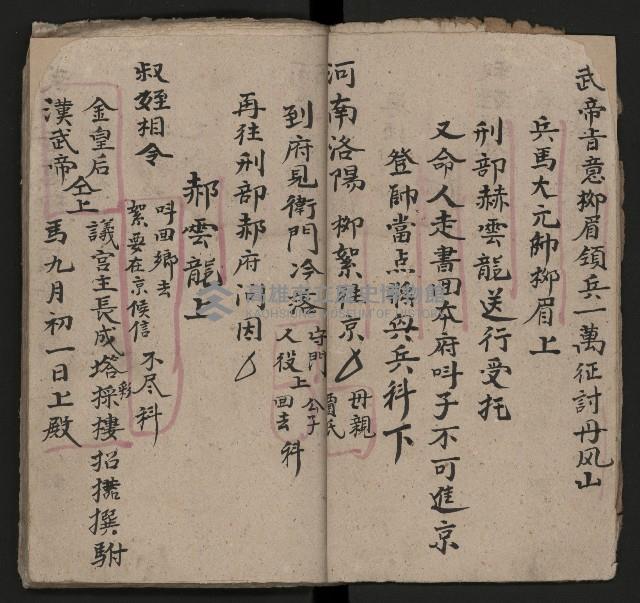 武帝旨意柳眉領兵一萬征討丹风山
兵馬大元帥柳眉上
刑部赫雲龍送行受托
又命人走書回本府叫子不可進京
登帥當点將與兵科下
河南洛陽 柳絮進京 母親 賈氏
到府見衛門冷淡 守門 人役上 公子 回去 科
再往刑部郝府 清因
郝雲龍上
叔姪相会
叫回鄉去
絮要在京候信 不尽科
金皇后
漢武帝 仝上
議宮主長成搭彩採摟招揽撰駙
馬九月初一日上殿
高雄市立歷史博物館
KAOHSIUNG MUSEUM OF HISTORY